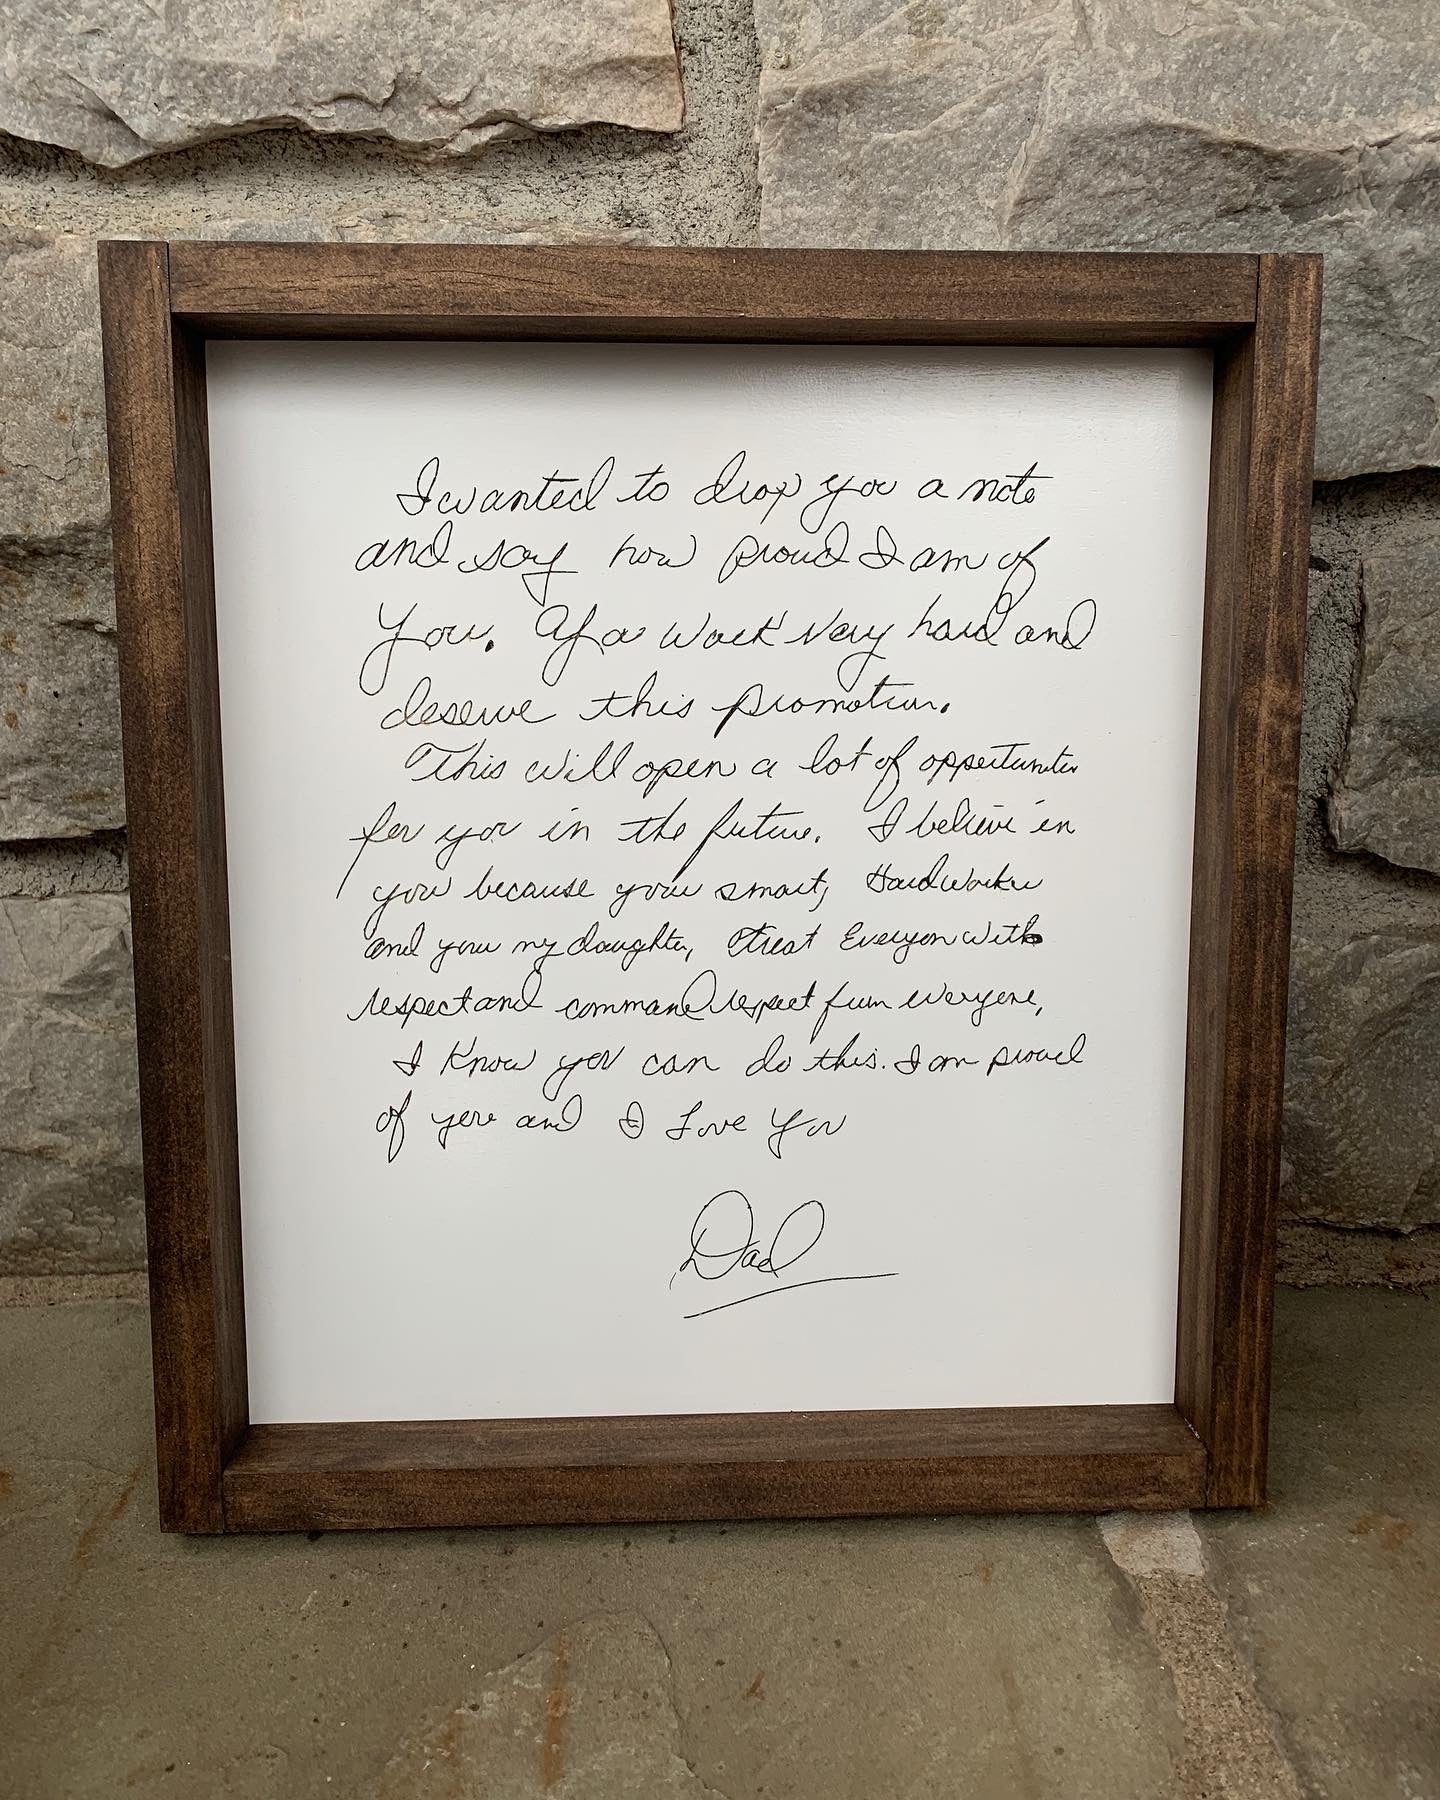 I wanted to drop you a note
and say how proud I am of
you. You work very hard and
deserve this promotion.
This will open a lot of opportunities
for you in the future. I believe in
you because your smart, Hard worker
and your my daughter, treat Everyon with
respect and command respect from everyone,
I know you can do this. I am proud
of you and I Love You
Dad